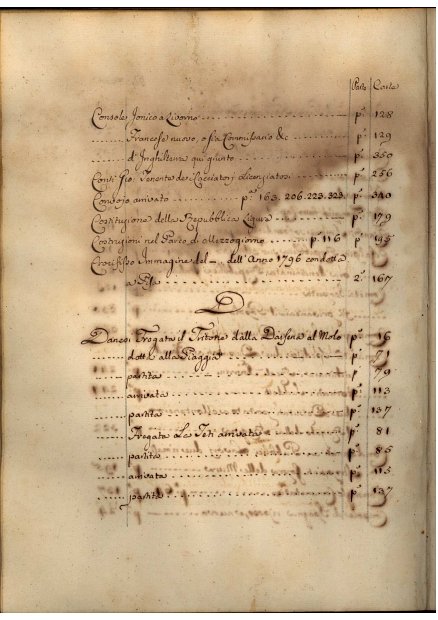 Parte Carte
Console Jonico a Livorno p.ª 128
Francese nuovo, o sia Commissario &c p.ª 129
d'Inghilterra qui giunto p.ª 350
Conti Tenente de Cacciatori Licenziato p.ª 256
Convojo arrivato p.ª 163. 206. 223. 323. p.ª 340
Costituzione della Repubblica Ligure p.ª 179
Costruzioni nel Porto di Mezzogiorno p.ª 116 p.ª 195
Crocifisso Immagine del dell'Anno 1796 condotta
a 2.ª 167
D
Danese Fregata il Tritone dalla Darsena al Molo p.ª 16
dott.ª alla Piaggia p.ª 71
partita p.ª 79
arrivata p.ª 113
partita p.ª 137
Fregata La Teti arrivata p.ª 81
partita p.ª 85
arrivata p.ª 115
partita p.ª 137